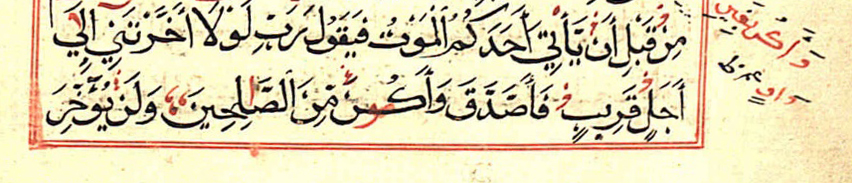 مِنْ قَبْلِ أَنْ يَّأْتِيَ أَحَدَكُمُ ٱلْمَوْتُ فَيَقُولَ رَبِّ لَوْلَا أَخَّرْتَنِي إِلَىٰ
أَجَلٍ قَرِيبٍ فَأَصَّدَّقَ وَأَكُن مِّنَ ٱلصَّٰلِحِينَ وَلَن يُؤَخِّرَ
واكن بغير
واو